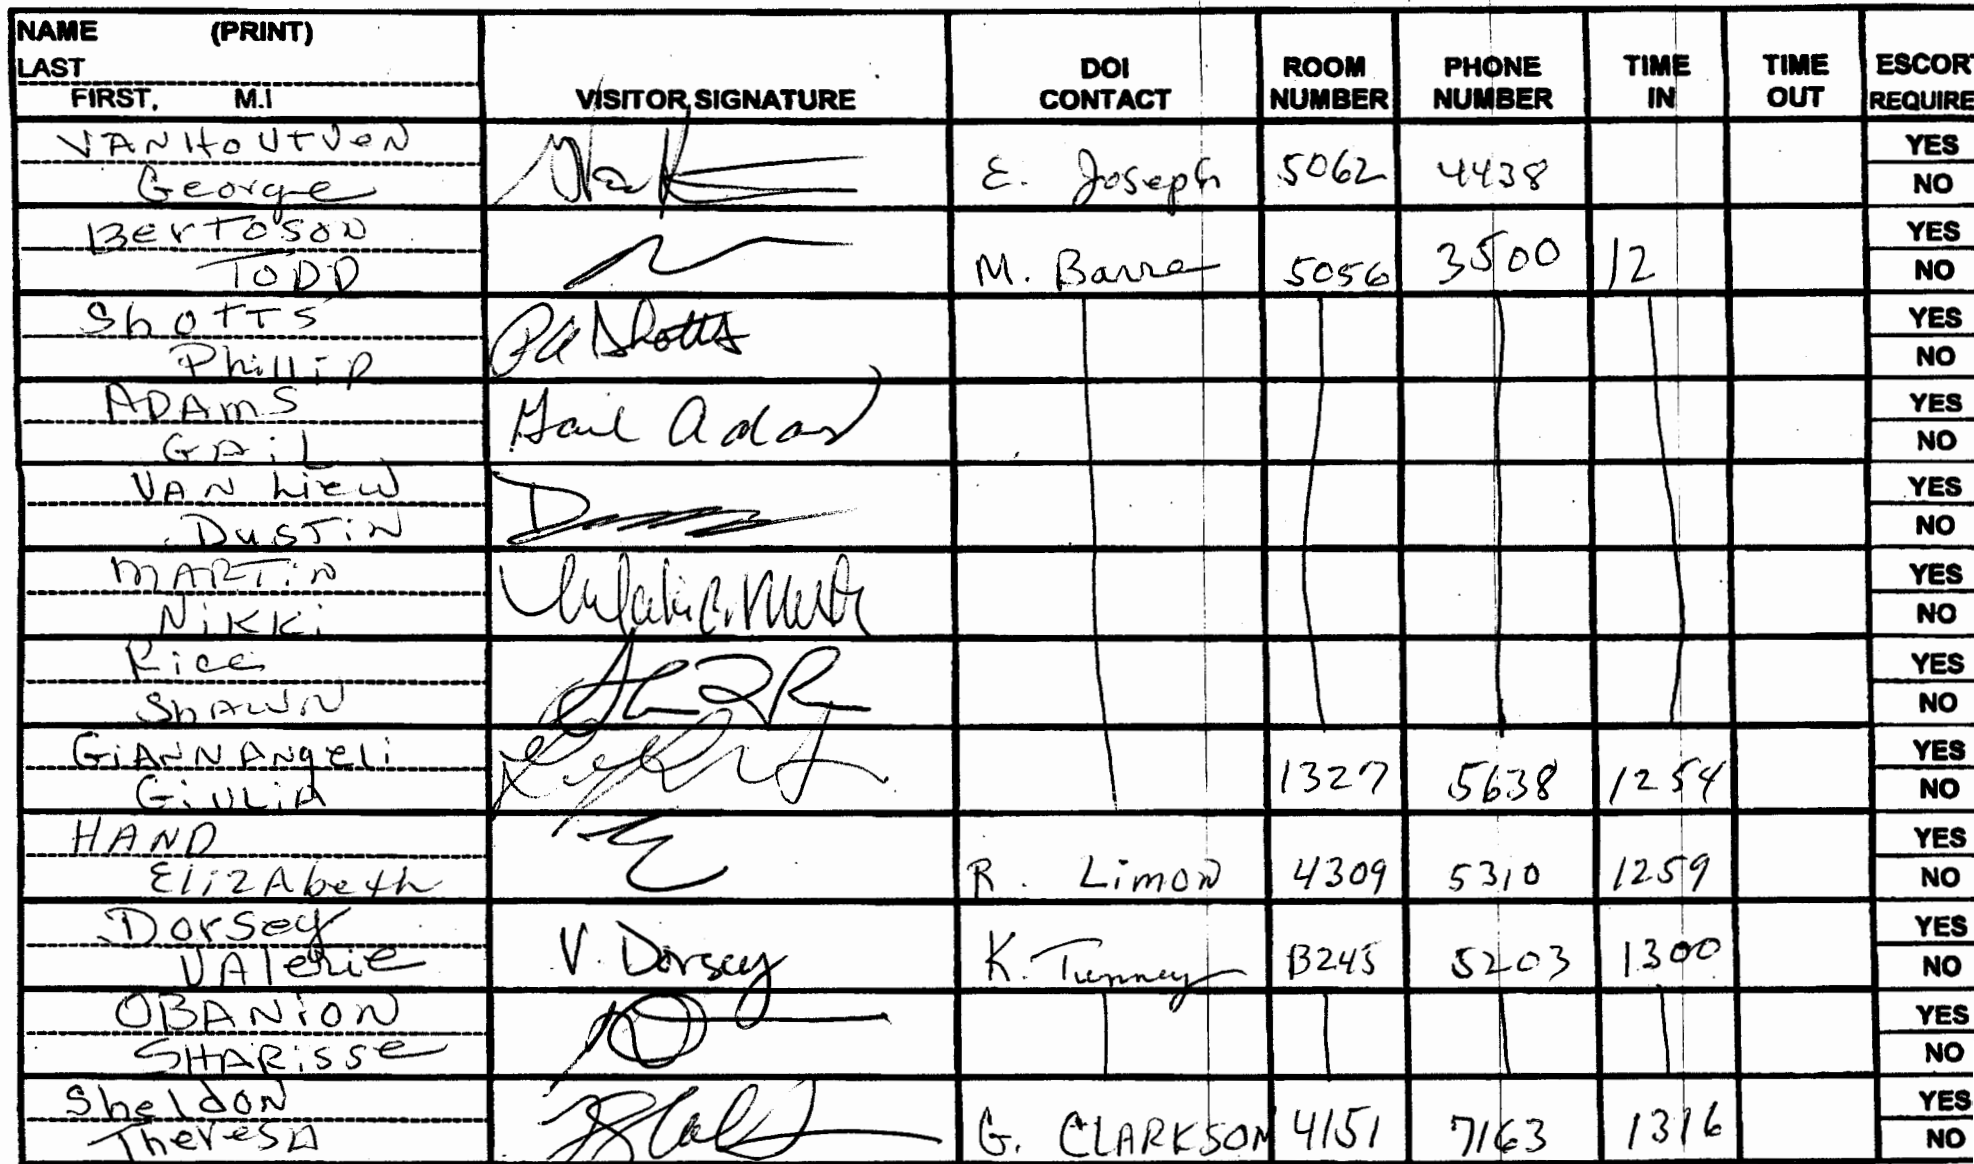 NAME (PRINT)
LAST
FIRST, M.I
VISITOR SIGNATURE
DOI CONTACT
ROOM NUMBER
PHONE NUMBER
TIME IN
TIME OUT
ESCORT
REQUIRE
VANHOUTVEN
George
E. Joseph 5062 4438
YES
NO
BERTOSON
TODD
M. Barre 5056 3500 12
YES
NO
Shotts
Phillip
PA Shotts
YES
NO
ADAMS
GAIL
Gail Adams
YES
NO
VAN Liew
DUSTIN
YES
NO
MARTIN
NIKKI
YES
NO
Rice
SHAWN
YES
NO
GIANNANGELI
GIULIA
1327 5638 1254
YES
NO
HAND
ElizAbeth
R. Limon 4309 5310 1259
YES
NO
Dorsey
VAlerie
V. Dorsey K. Tunney B245 5203 1300
YES
NO
OBANION
SHARISSE
YES
NO
Sheldon
Theresa
G. CLARKSON 4151 7163 1316
YES
NO